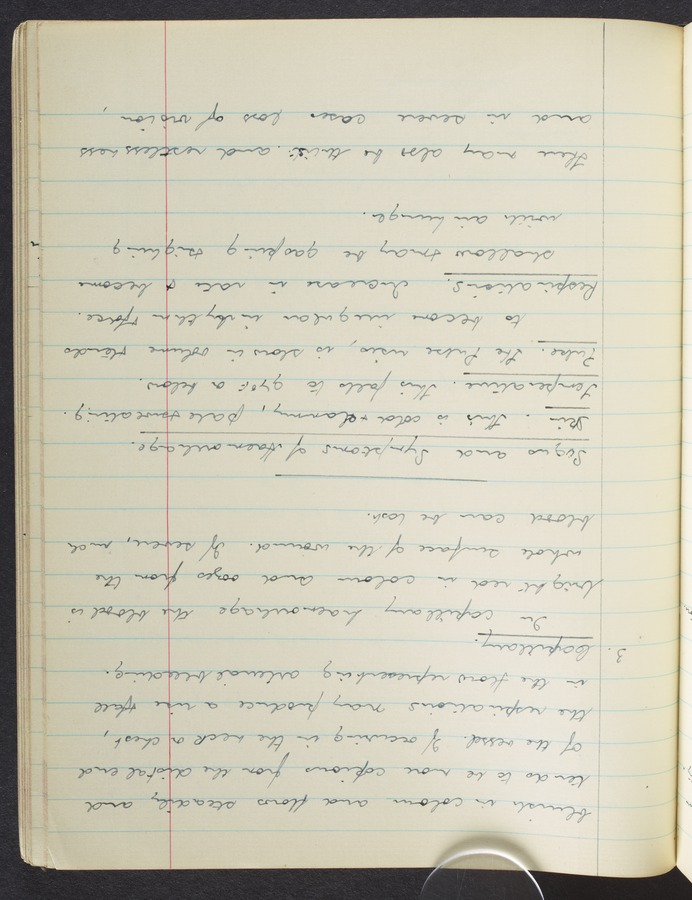 blueish in colour and flows steadily, and
tends to be more copious from the distal end
of the vessel. If occuring in the neck or chest,
the respirations may produce a rise & fall
in the flow representing arterial bleeding.
3. Capillary.
In capillary haemorrhage the blood is
bright red in colour and oozes from the
whole surface of the wound. If severe, much
blood can be lost.
Signs and Symptoms of Haemorrhage.
Skin. This is cold & clammy, pale & sweating.
Temperature. This falls to 97°F or below.
Pulse. The Pulse rises, is slow in volume & tends
to become irregular in rhythm & force.
Respirations. Increase in rate & become
shallow & may be gasping & sighing
with air hunger.
There may also be thirst and restlessness
and in severe cases loss of vision,